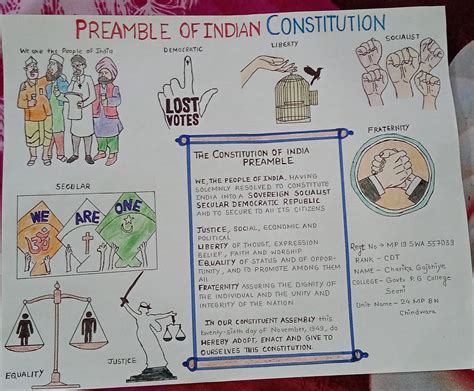 PREAMBLE OF INDIAN CONSTITUTION
We are the People of India
DEMOCRATIC
LIBERTY
SOCIALIST
LOST
VOTES
THE CONSTITUTION OF INDIA
PREAMBLE
WE, THE PEOPLE OF INDIA, HAVING
SOLEMNLY RESOLVED TO CONSTITUTE
INDIA INTO A SOVEREIGN SOCIALIST
SECULAR DEMOCRATIC REPUBLIC
AND TO SECURE TO ALL ITS CITIZENS
JUSTICE, SOCIAL, ECONOMIC AND
POLITICAL
LIBERTY OF THOUGHT, EXPRESSION
BELIEF, FAITH AND WORSHIP
EQUALITY OF STATUS AND OF OPPOR-
TUNITY, AND TO PROMOTE AMONG THEM
ALL
FRATERNITY ASSURING THE DIGNITY
OF THE INDIVIDUAL AND THE UNITY AND
INTEGRITY OF THE NATION
IN OUR CONSTITUENT ASSEMBLY this
twenty-sixth day of November, 1949, do
HEREBY ADOPT, ENACT AND GIVE TO
OURSELVES THIS CONSTITUTION.
FRATERNITY
SECULAR
WE ARE ONE
ॐ
Regt No → MP 19 SWA 557039
RANK - CDT
NAME - Charika Gajbhiye
COLLEGE - Govt. P.G College
Seoni
Unit Name - 24 MP BN
Chindwara
EQUALITY
JUSTICE